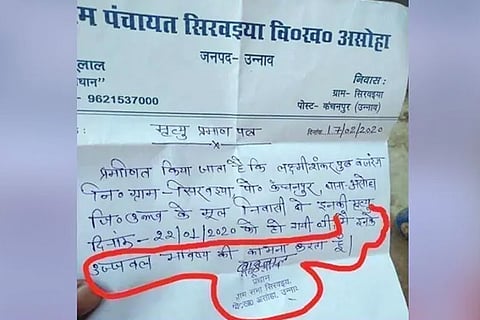 म पंचायत सिरवइया वि०ख० असोहा
जनपद- उन्नाव
लाल
धान"
- 9621537000
निवास :
ग्राम- सिरवइया
पोस्ट- कंचनपुर (उन्नाव)
मृत्यु प्रमाण पत्र
दिनांक 17/02/2020
प्रमाणित किया जाता है कि लक्ष्मीशंकर पुत्र बजरंग
नि० ग्राम- सिरवइया पो० कंचनपुर, थाना- असोहा
जि० उन्नाव के मूल निवासी थे इनकी मृत्यु
दिनांक- 22/01/2020 को हो गयी थी मैं इनके
उज्जवल भविष्य की कामना करता हूँ।
प्रधान
ग्राम सभा सिरवइया
वि०ख० असोहा, उन्नाव